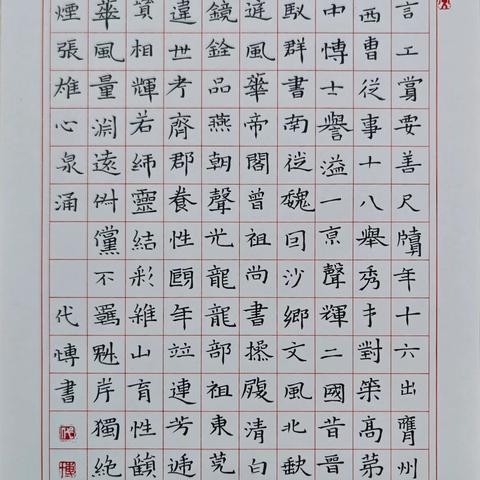 言工賞要善尺牘年十六出膺州
西曹從事十八舉秀才對策高第
中博士譽溢一京聲輝二國昔晉
馭群書南從魏回沙鄉文風北歃
遊風華帝閣曾祖尚書操履清白
鏡銓品燕朝聲光龍龍部祖東莞
違世考齊郡養性頤年竝連芳遞
相輝若綿靈結彩維山育性韻
華風量淵遠倜儻不羈魁岸獨絶
煙張雄心泉涌
代博書